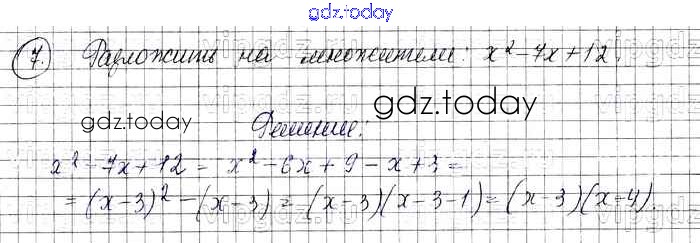 gdz.today
7. Разложить на множители: x² - 7x + 12.
gdz.today
gdz.today
Решение:
x² - 7x + 12 = x² - 6x + 9 - x + 3 =
= (x - 3)² - (x - 3) = (x - 3)(x - 3 - 1) = (x - 3)(x - 4)